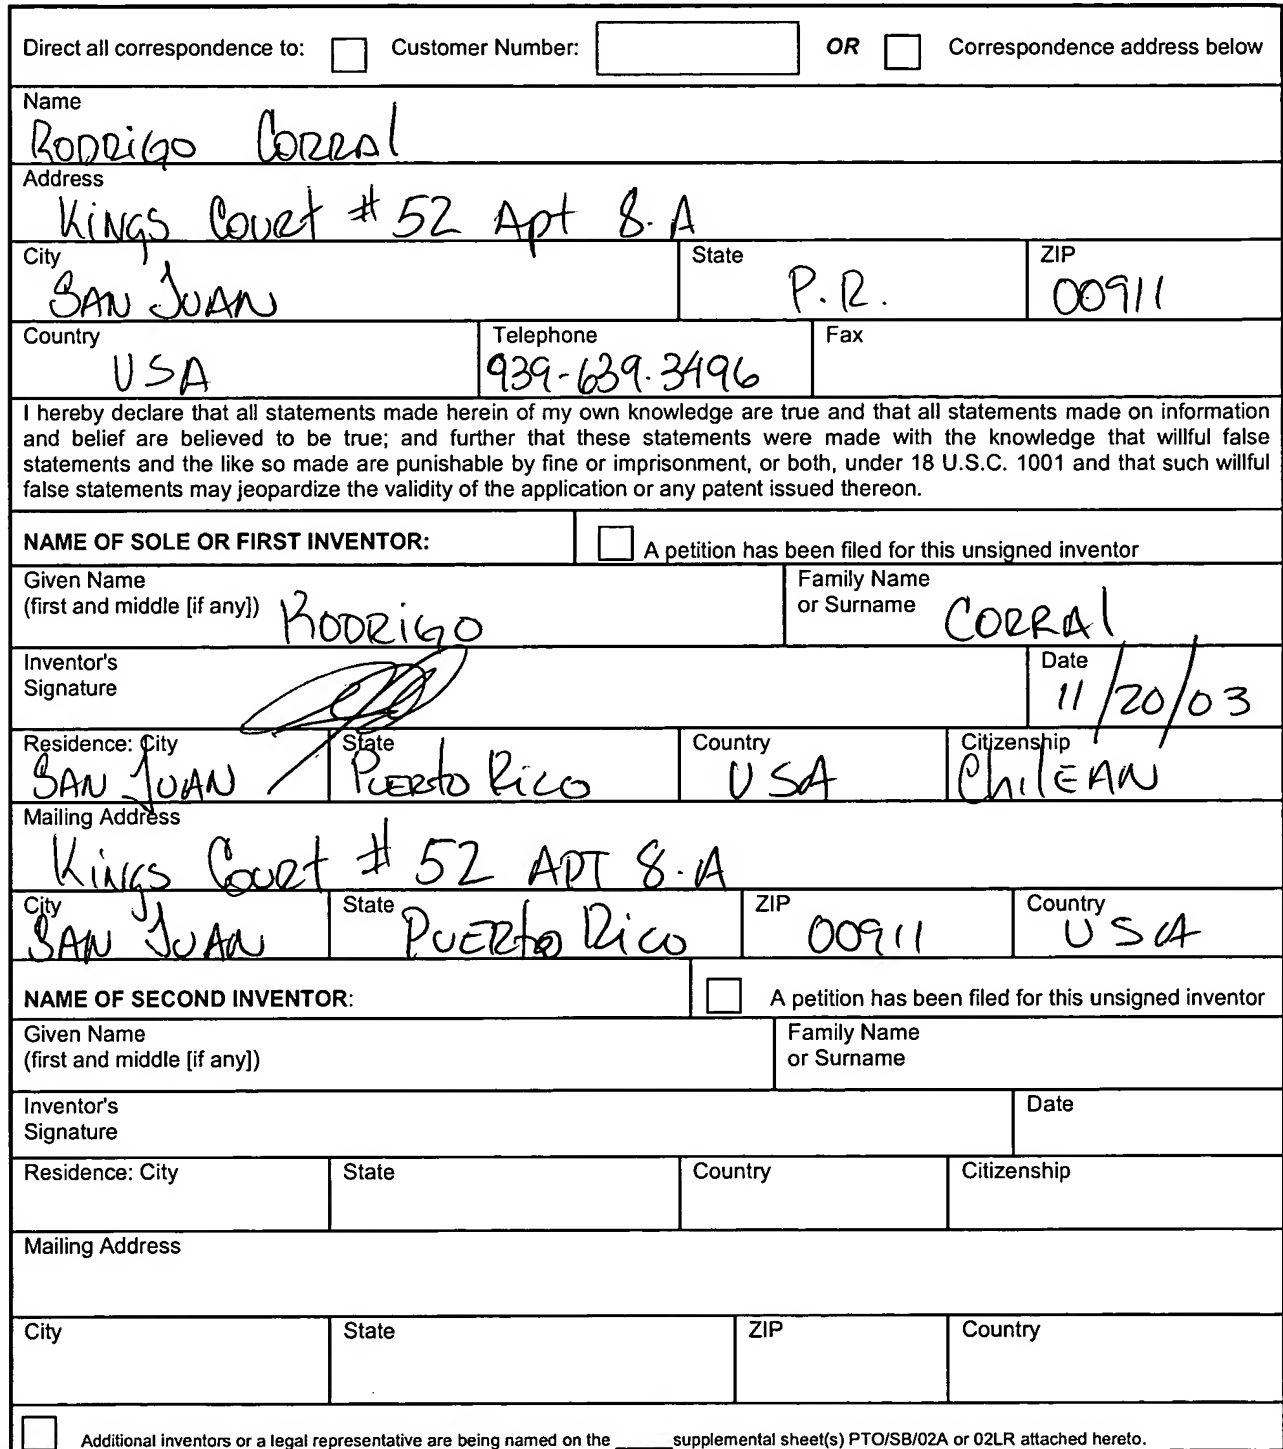 Direct all correspondence to: Customer Number: OR Correspondence address below
Name
Rodrigo Corral
Address
Kings Court # 52 Apt 8.A
City State ZIP
San Juan P.R. 00911
Country Telephone Fax
USA 939-639.3496
I hereby declare that all statements made herein of my own knowledge are true and that all statements made on information
and belief are believed to be true; and further that these statements were made with the knowledge that willful false
statements and the like so made are punishable by fine or imprisonment, or both, under 18 U.S.C. 1001 and that such willful
false statements may jeopardize the validity of the application or any patent issued thereon.
NAME OF SOLE OR FIRST INVENTOR: A petition has been filed for this unsigned inventor
Given Name Family Name
(first and middle [if any]) Rodrigo or Surname Corral
Inventor's Date
Signature 11/20/03
Residence: City State Country Citizenship
San Juan Puerto Rico USA Chilean
Mailing Address
Kings Court # 52 APT 8.A
City State ZIP Country
San Juan Puerto Rico 00911 USA
NAME OF SECOND INVENTOR: A petition has been filed for this unsigned inventor
Given Name Family Name
(first and middle [if any]) or Surname
Inventor's Date
Signature
Residence: City State Country Citizenship
Mailing Address
City State ZIP Country
Additional inventors or a legal representative are being named on the _____supplemental sheet(s) PTO/SB/02A or 02LR attached hereto.